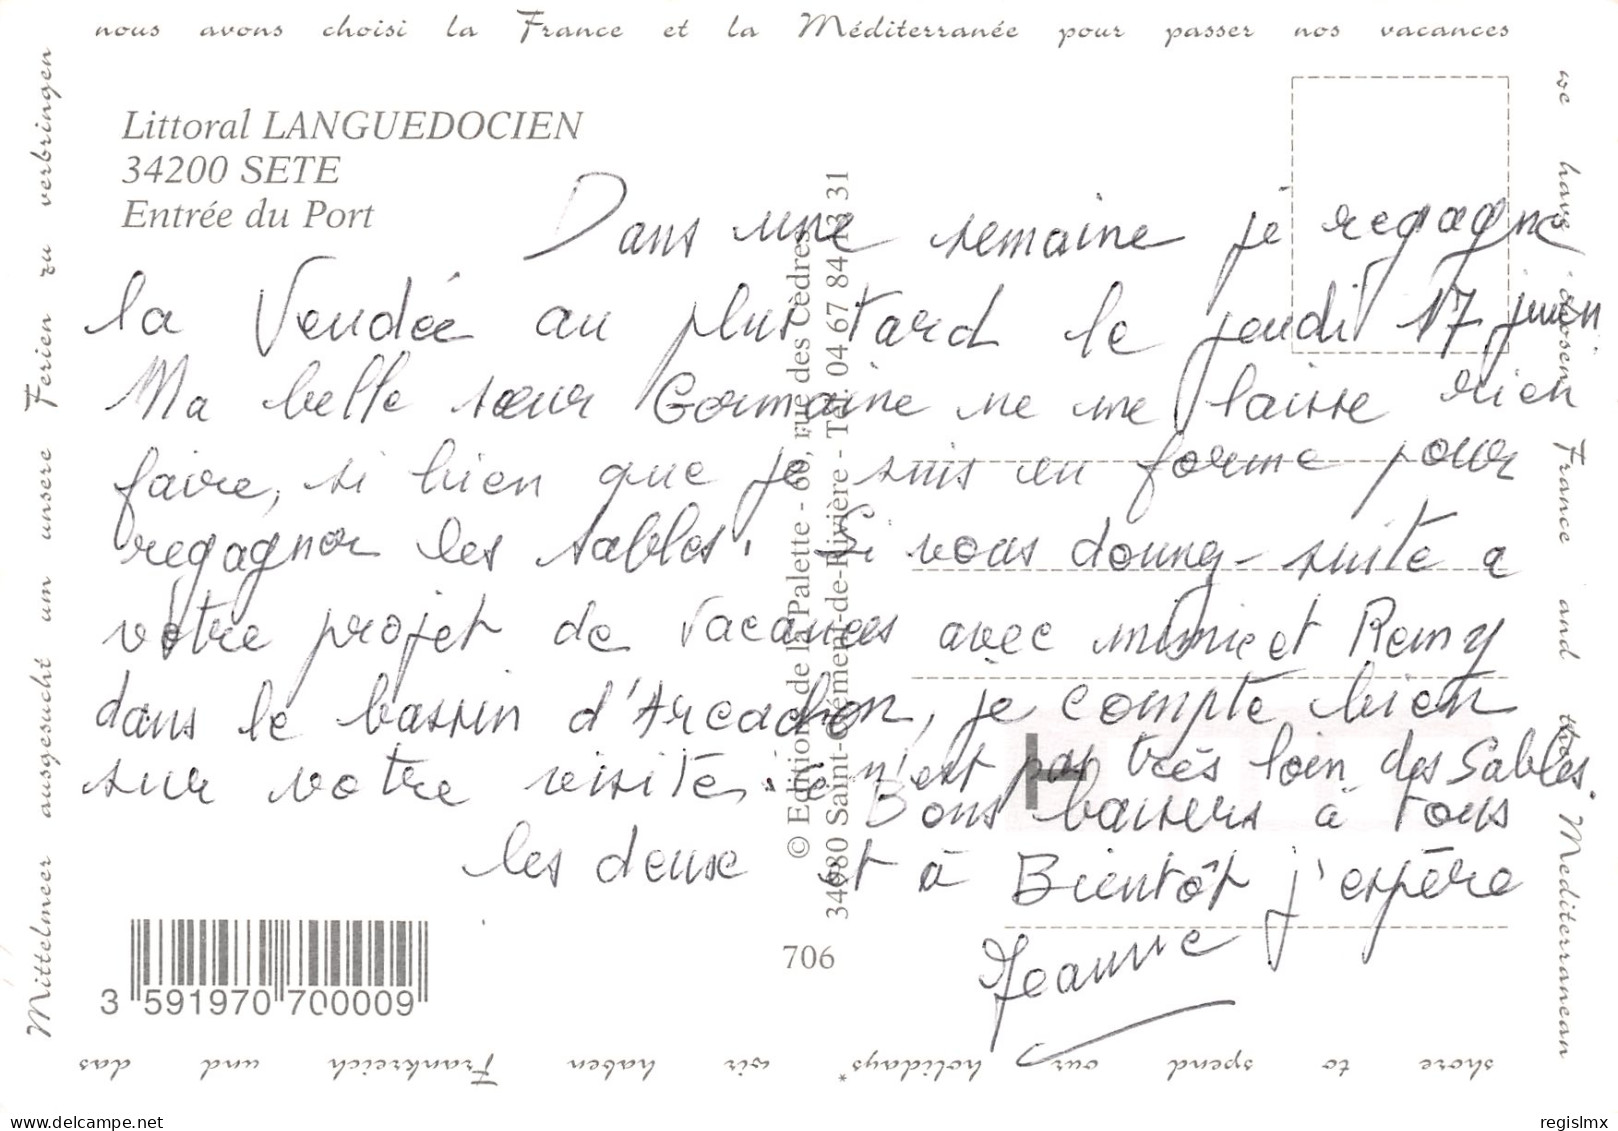 nous avons choisi la France et la Méditerranée pour passer nos vacances
we have choosen France and the Mediterranean
shore to spend our holidays* wir haben Frankreich und das
Mittelmeer ausgesucht um unsere Ferien zu verbringen
Littoral LANGUEDOCIEN
34200 SETE
Entrée du Port
Dans une semaine je regagne
la Vendée au plus tard le jeudi 17 juin
Ma belle sœur Germaine ne me laisse rien
faire, si bien que je suis en forme pour
regagner les sables. Si vous donnez suite a
votre projet de vacances avec mimie et Remy
dans le bassin d'Arcachon, je compte bien
sur votre visite, ce n'est pas très loin des Sables.
Bons baisers à tous
les deux et à Bientôt j'espère
Jeanne
© Edition de la Palette - 66, rue des Cèdres
34980 Saint-Clément-de-Rivière - Tél. 04 67 84 13 31
706
3 591970 700009
delcampe.net
regislmx